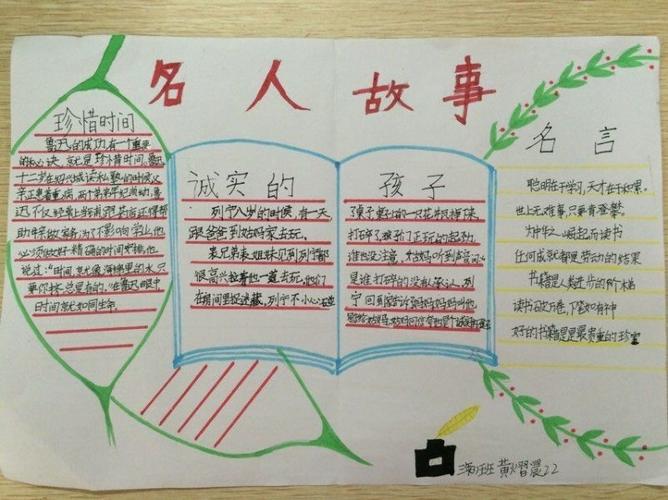 名人故事
珍惜时间
鲁迅的成功,有一个重要
的秘诀,就是珍惜时间。鲁迅
十二岁在绍兴城读私塾的时候,父
亲正患着重病,两个弟弟年纪尚幼,鲁
迅不仅经常上当铺,跑药店,还得帮
助母亲做家务;为了不影响学业,他
必须做好精确的时间安排。他
说过:"时间,就像海绵里的水,只
要你挤,总是有的。"在鲁迅眼中
时间就如同生命。
诚实的
列宁八岁的时候,有一天
跟爸爸到姑妈家去玩。
表兄弟表姐妹见到列宁都
很高兴,拉着他一道去玩。他们
在房间里捉迷藏,列宁不小心
孩子
打碎了。孩子们正玩的起劲,
谁也没注意。大姑妈听到声音
是谁打碎的没有承认。列
宁回到
名言
聪明在于学习,天才在于积累。
世上无难事,只要肯登攀。
为中华之崛起而读书
任何成就都是劳动的结果
书籍是人类进步的阶梯
读书破万卷,下笔如有神
好的书籍是最贵重的珍宝